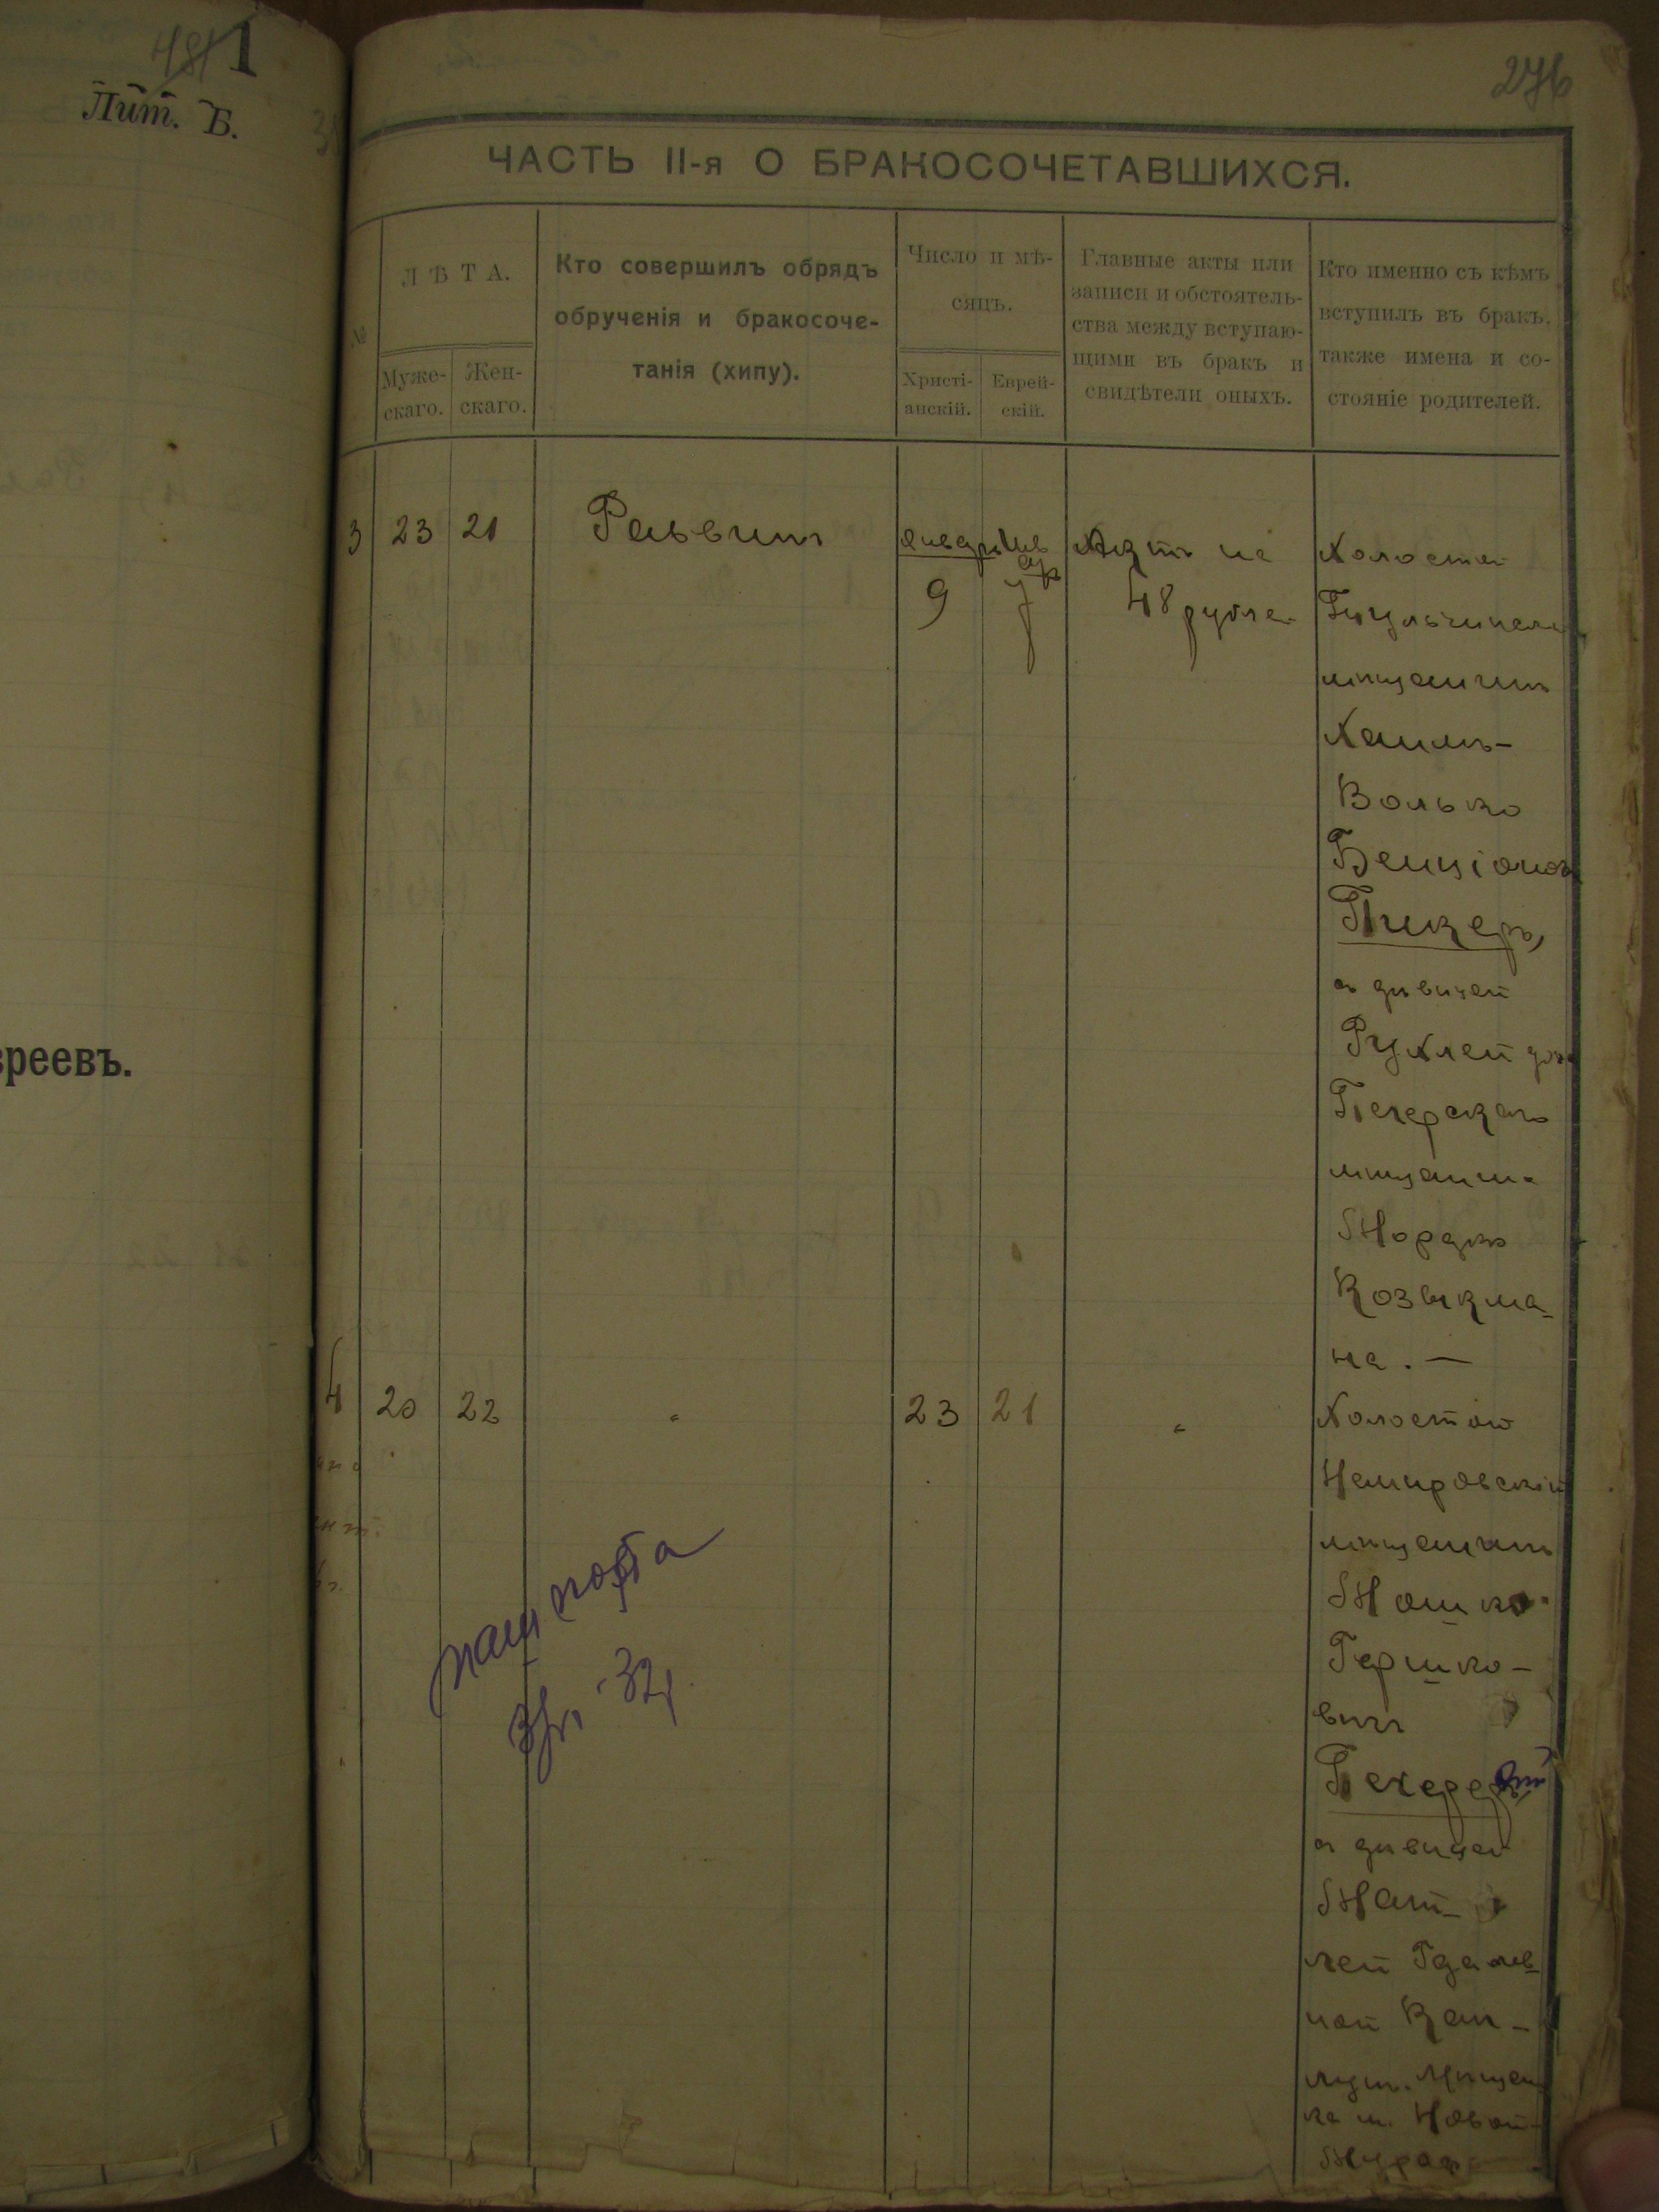 481 1
Лит. Б.
вреевъ.
276
ЧАСТЬ II-я О БРАКОСОЧЕТАВШИХСЯ.
№
ЛѢТА.
Муже-
скаго.
Жен-
скаго.
Кто совершилъ обрядъ
обрученія и бракосоче-
танія (хипу).
Число и мѣ-
сяцъ.
Христі-
анскій.
Еврей-
скій.
Главные акты или
записи и обстоятель-
ства между вступаю-
щими въ бракъ и
свидѣтели оныхъ.
Кто именно съ кѣмъ
вступилъ въ бракъ,
также имена и со-
стояніе родителей.
3 23 21 Раввинъ
9 7
Актъ на
48 рублей
Холостой
мѣщанинъ
Хаимъ-
Волько
Бенціонов
Пикеръ,
съ дѣвицей
Рухлей доч
Печерскаго
мѣщанина
Мордко
Козакма-
на. —
4 20 22 " 23 21 "
Холостой
Немировскій
мѣщанинъ
Мошко-
Гершко-
вичъ
съ дѣвицей
Мат-
лей Гдалев-
ной
мѣщан
ка м. Новой-
паспорта